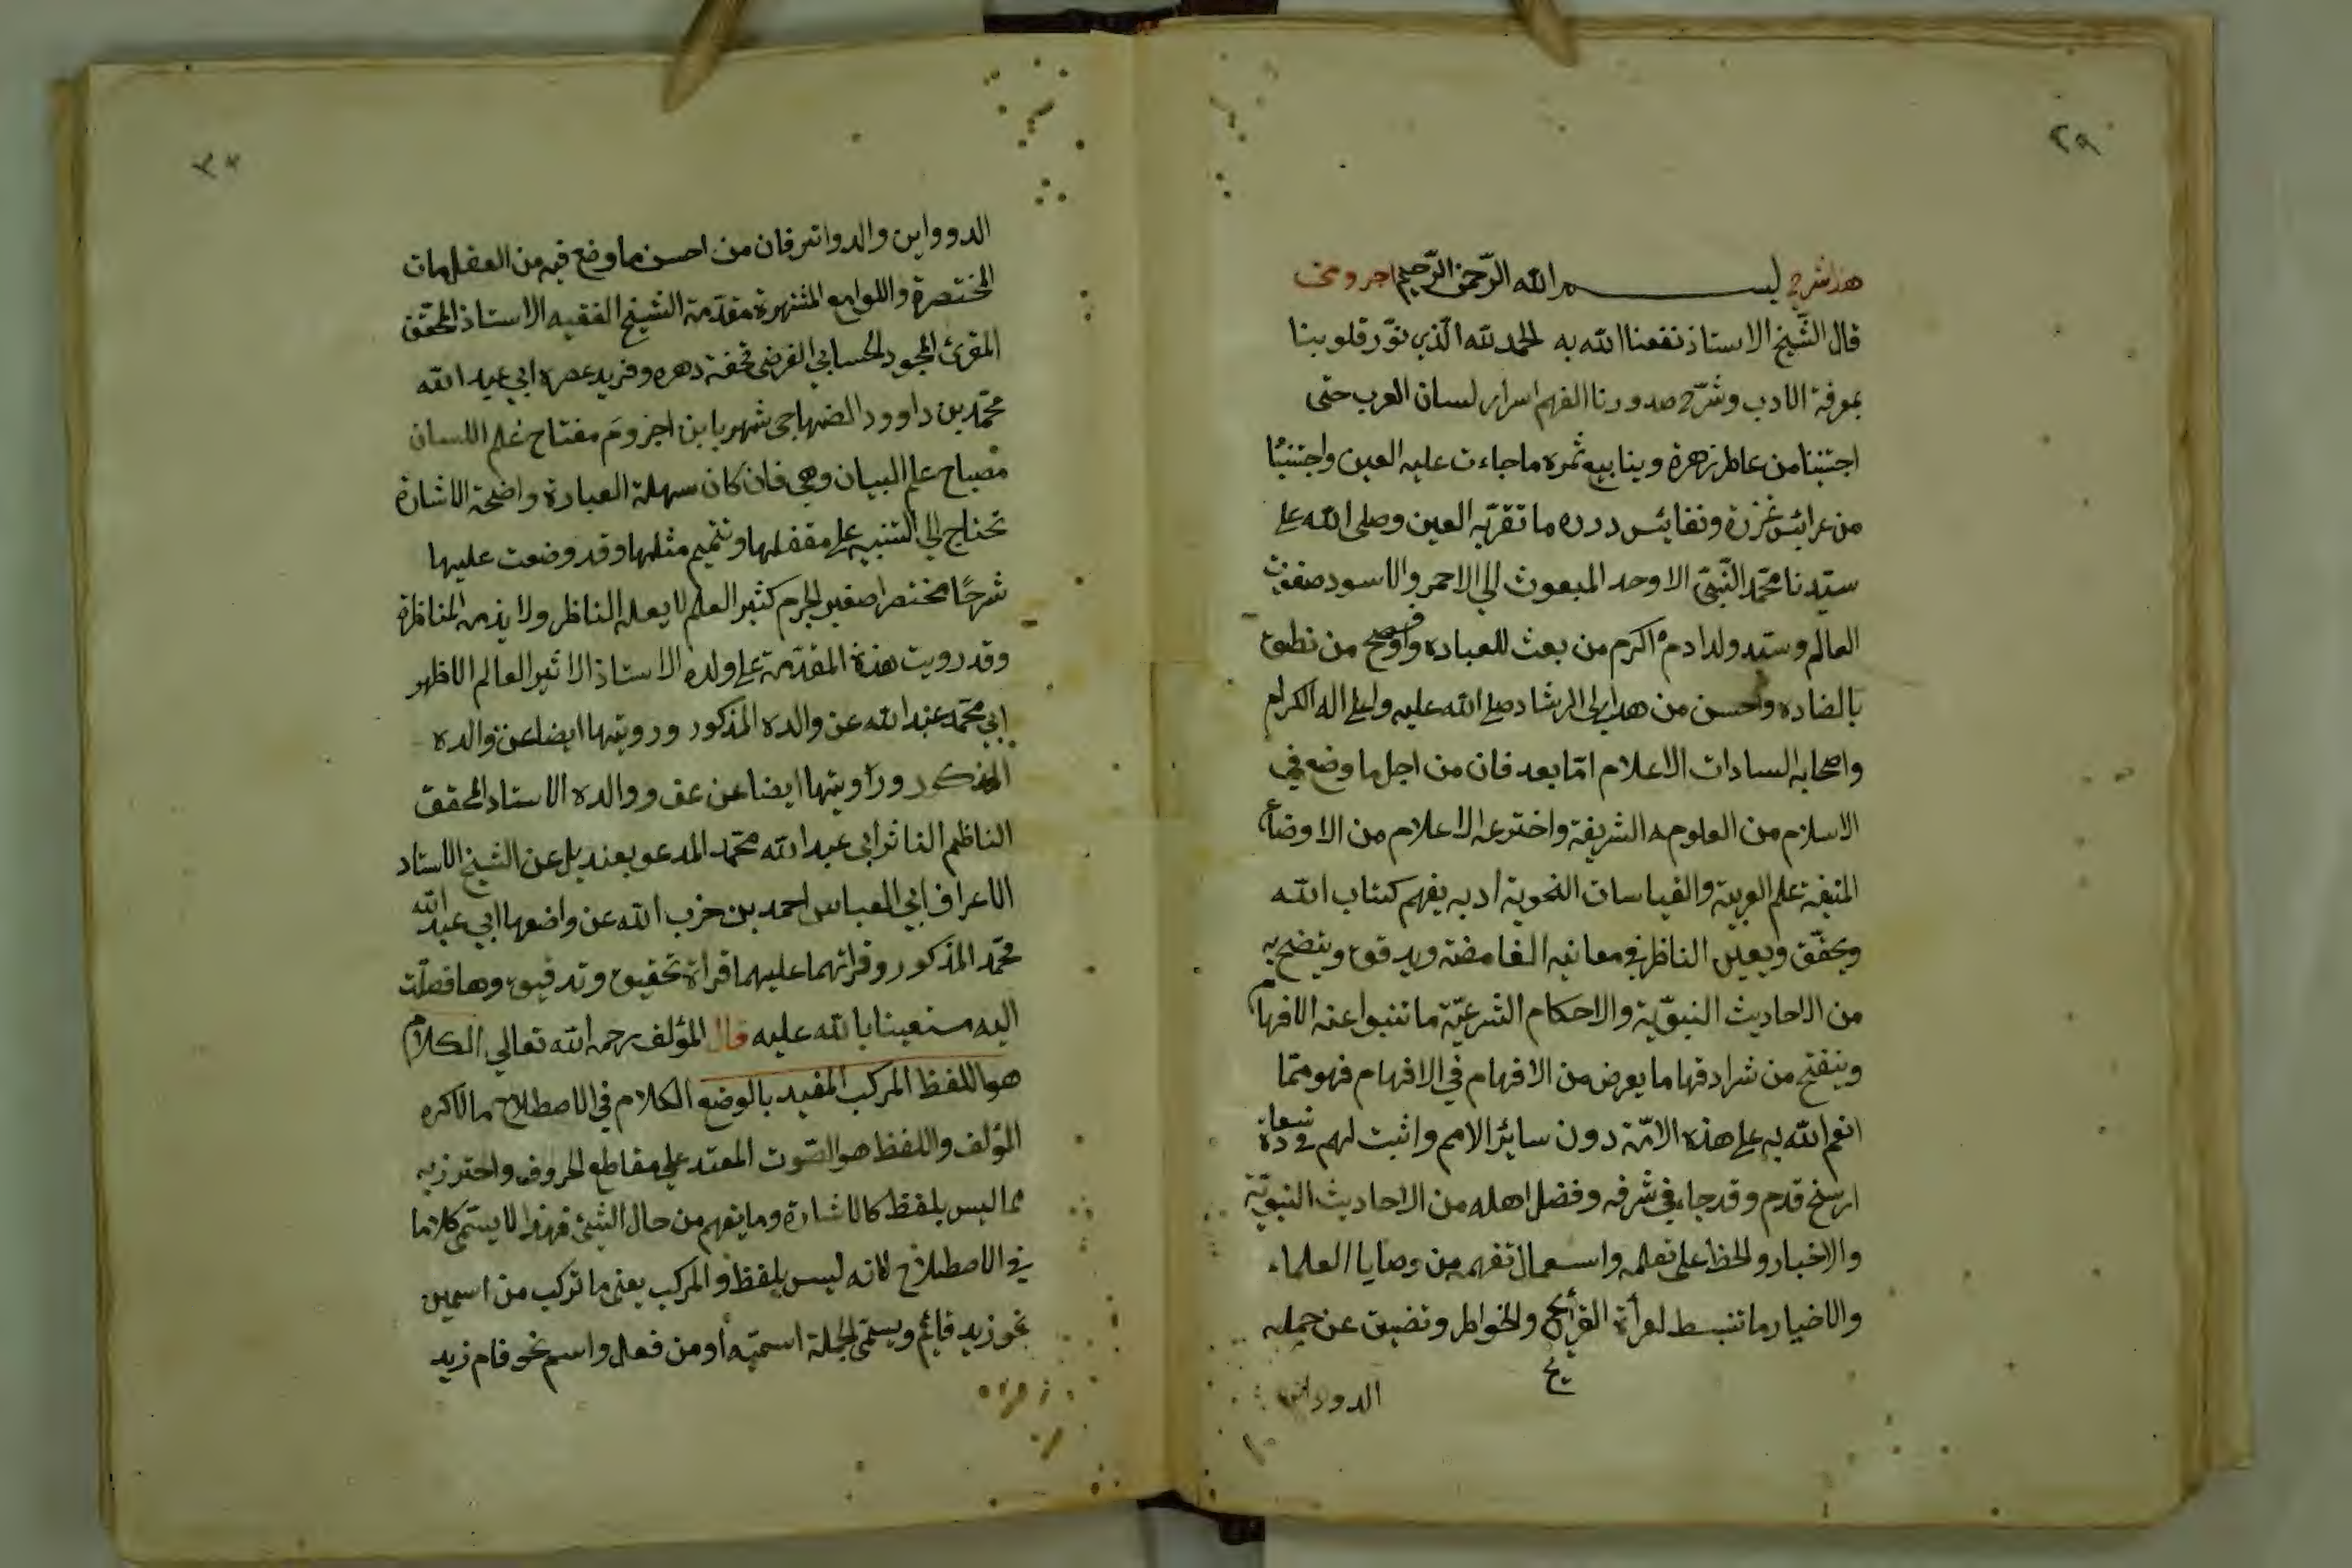 ٢٩
هذا شرح بسم الله الرّحمن الرّحيم اجرومى
قال الشّيخ الاستاذ نفعنا الله به الحمد لله الّذي نوّر قلوبنا
بمعرفة الادب وشرّح صدورنا الفهم اسرار لسان العرب حتى
اجتنينا من عاطر زهرة وينابيع ثمره ما جاءت عليه العين واجتنينا
من عرائس غرزة ونفائس درره ما تقرّبه العين وصلى الله على
سيّدنا محمّد النّبيّ الاوحد المبعوث الي الاحمر والاسود صفوت
العالم وسيّد ولد ادم اكرم من بعث للعباده وافصح من نطق
بالضاده واحسن من هدا الى الرشاد صلى الله عليه وعلى اله الكرام
واصحابه السادات الاعلام امّا بعد فان من اجل ما وضع في
الاسلام من العلومه الشريفة واخترعه الاعلام من الاوضاع
المنيفة علم العربية والقياسات النحوية اد به يفهم كتاب الله
ويحقّق ويعين الناظر في معانيه الغامضة ويدقق ويتضح به
من الاحاديث النبوّية والاحكام الشرعيّة ما تنبوا عنه الافهام
وينفتح من شرادقها ما يعرض من الافهام في الافهام فهو ممّا
انعم الله به على هذه الامّة دون سائر الامم واثبت لهم في
ارسخ قدم وقد جاء في شرفه وفضل اهله من الاحاديث النبويّة
والاخبار والحظ على تعلمه واستعمال تفهمه من وصايا العلماء
والاخيار ما تنبسط لقرأة القرأئح والخواطر وتضيق عن جمله
يح
الدوواين
٣٠
الدوواين والدواتر فان من احسن ما وضع فيه من المقدمات
المختصرة واللوامع المشتهرة مقدّمة الشيخ الفقيه الاستاذ المحقّق
المقرئ المجود الحسابي الفرضي تحفة دهره وفريد عصره ابي عبد الله
محمّد بن داوود الضنهاجي شهر بابن اجروم مفتاح علم اللسان
مصباح علم البيان وهي فان كان سهلة العبادة واضحة الاشارة
تحتاج الي التنبيه على مقفلها وتتميم مثلها وقد وضعت عليها
شرحًا مختصرا صغير الجرم كثير العلم لا يعله الناظر ولا يذمه المناظرة
وقد رويت هذة المقدّمة على ولده الاستاذ الاثير العالم الاظهر
ابي محمّد عبد الله عن والده المذكور ورويتها ايضا عن والده
المذكور وراويتها ايضا عن عف ووالده الاستاد المحقق
الناظم الناثر أبي عبد الله محمّد المدعو بعنديل عن الشيخ الاستاد
الاعراف ابي العباس احمد بن حزب الله عن واضعها ابي عبد الله
محمّد المذكور وقرائهما عليهما قراة تحقيق وتدقيق وها فصلّت
اليه مستعينا بالله عليه قال المؤلف رحمه الله تعالي الكلام
هو اللفظ المركب المفيد بالوضع الكلام في الاصطلاح ما لاكره
المؤلف واللفظ هو الصّوت المعتد على مقاطع الحروف واحترز به
مما ليس بلفظ كالاشارة وما يفهم من حال الشئ فهذا لا يسمّى كلاما
في الاصطلاح لانه ليس بلفظ والمركب يعني ما تركب من اسمين
نحو زيد قائم ويسمّى الجملة اسميّه أو من فعل واسم نحو قام زيد